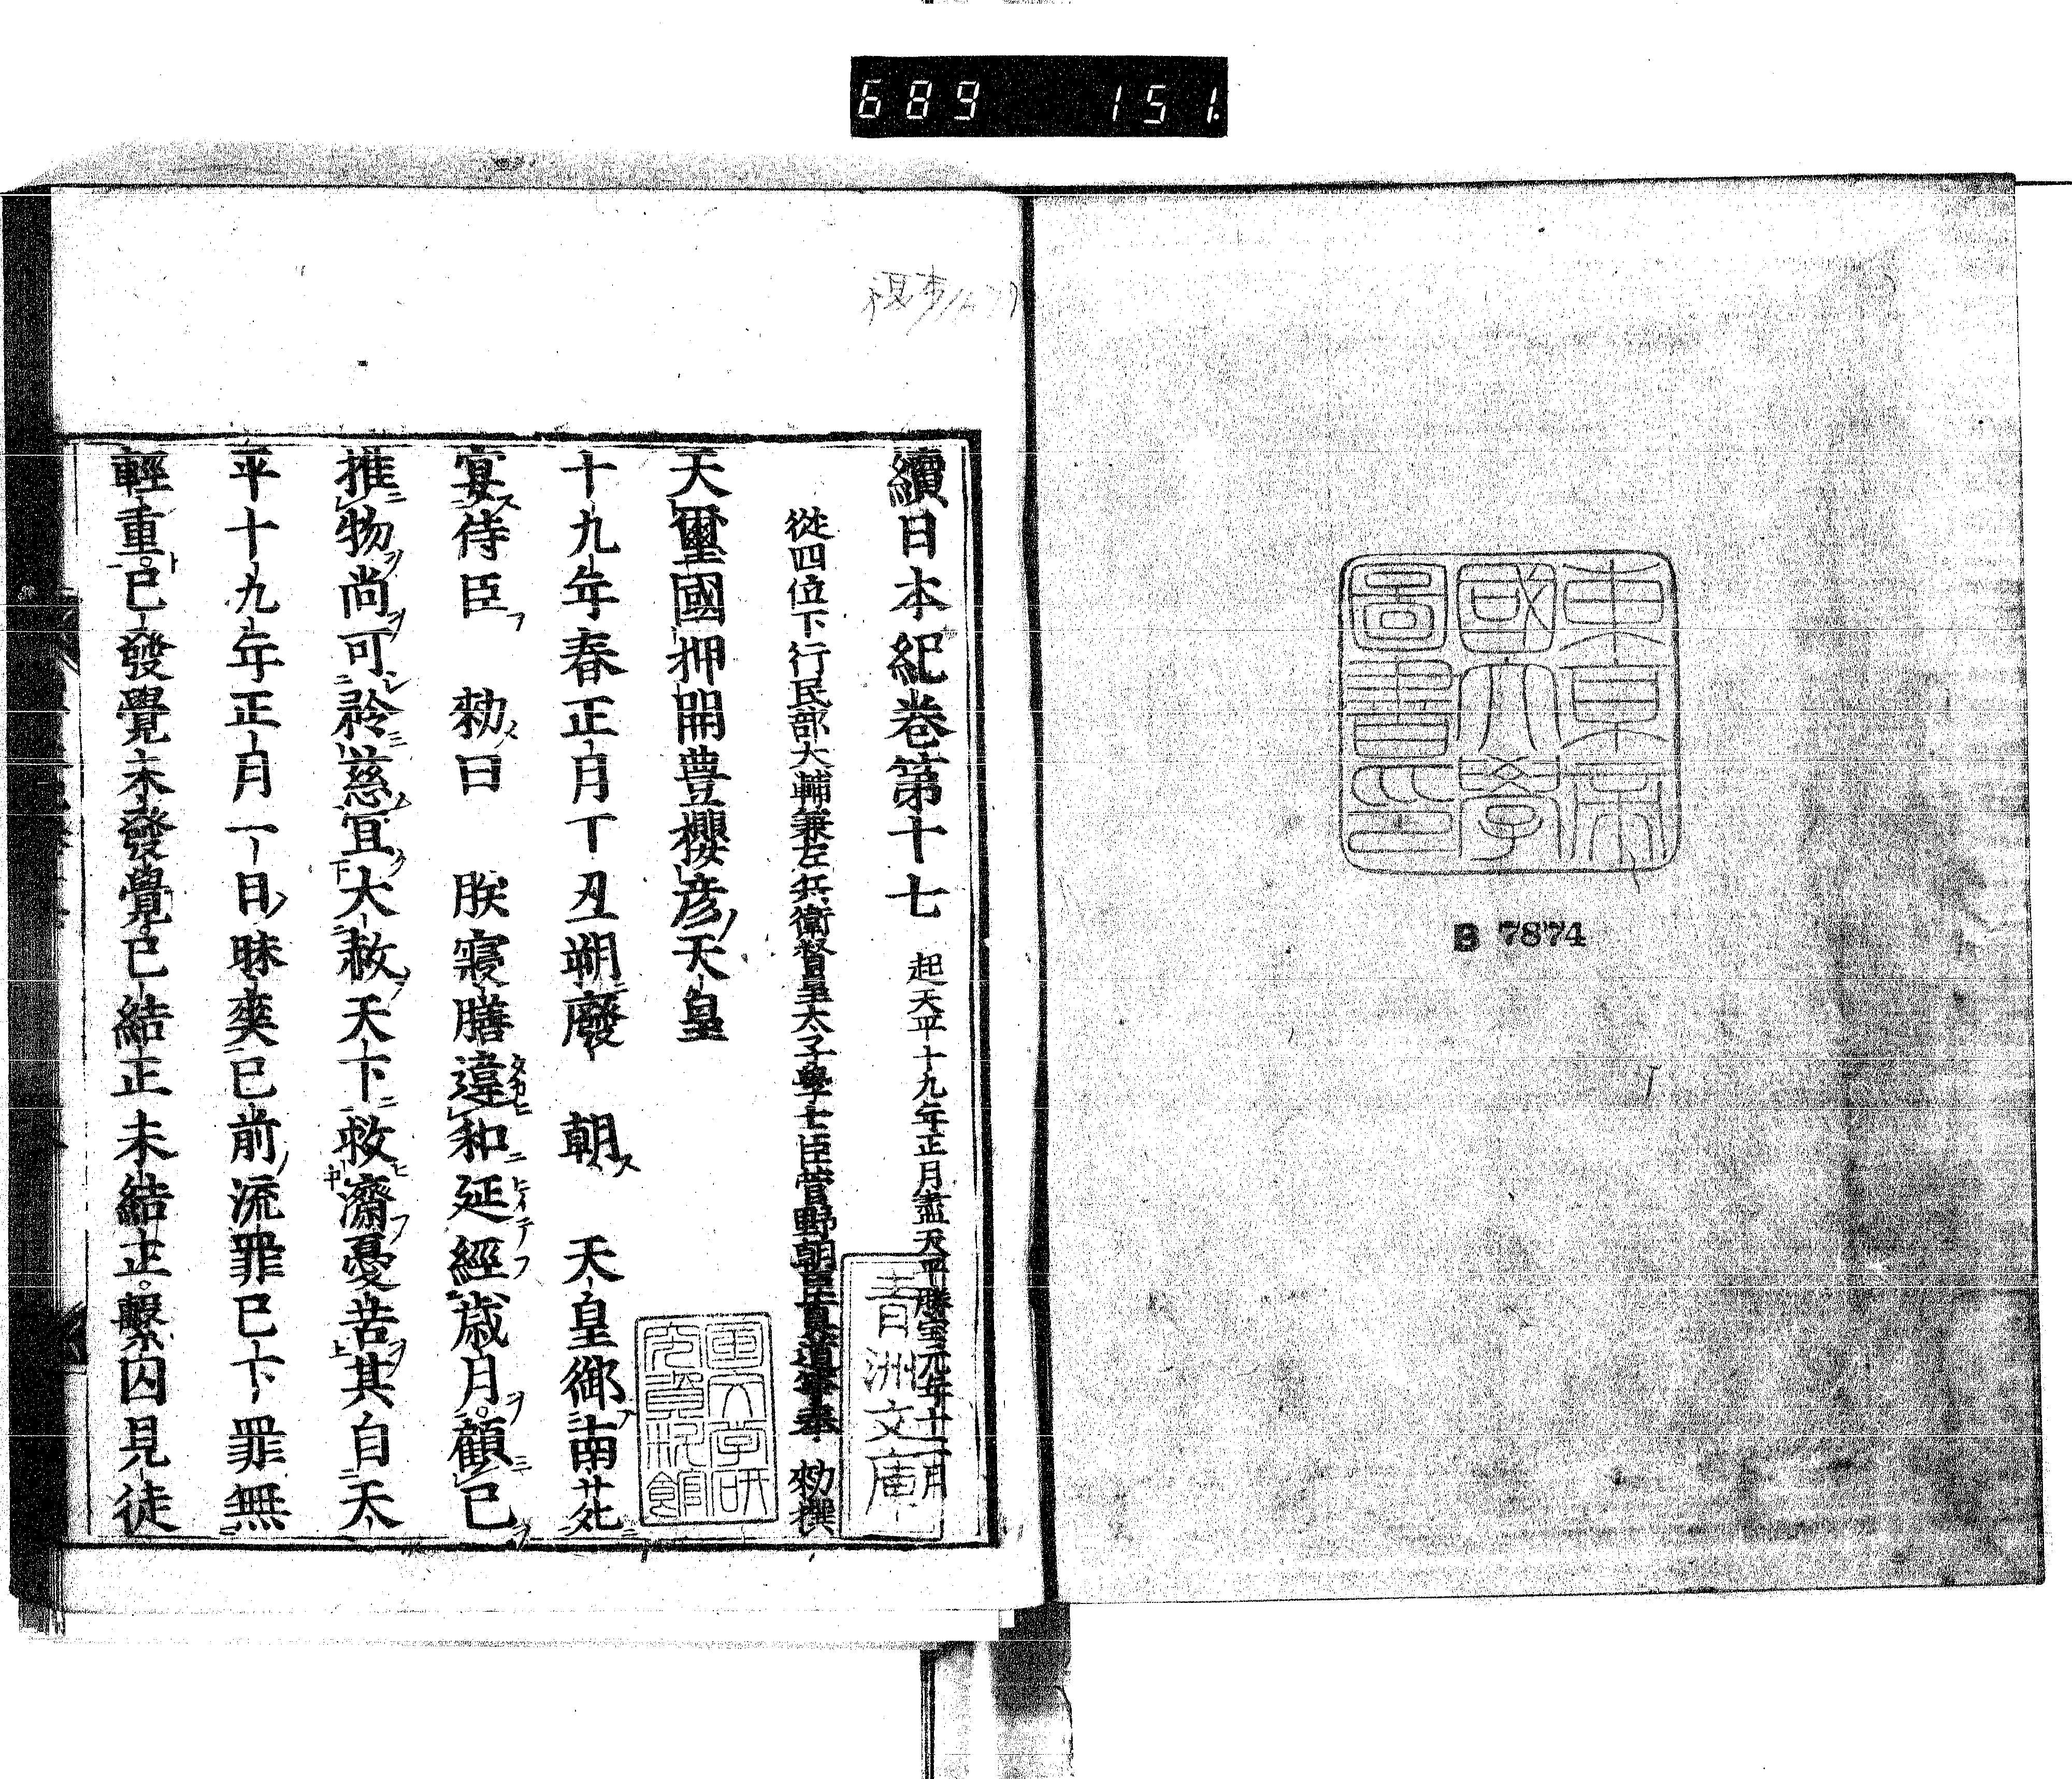 689 151.
東京帝
國大學
圖書印
B 7874
續日本紀卷第十七 起天平十九年正月盡天平勝宝元年十二月
從四位下行民部大輔兼左兵衛督皇太子學士臣菅野朝臣眞道等奉 勅撰
天璽國押開豊櫻彦天皇
十九年春正月丁丑朔廢 朝 天皇御南苑
宴侍臣 勅曰 朕寢膳違和延經歳月顧已
推物尚可矜慈宜大赦天下救濟憂苦其自天
平十九年正月一日昧爽已前流罪已下罪無
輕重已發覺未發覺已結正未結正繋囚見徒
青洲文庫
国文学研
究資料館